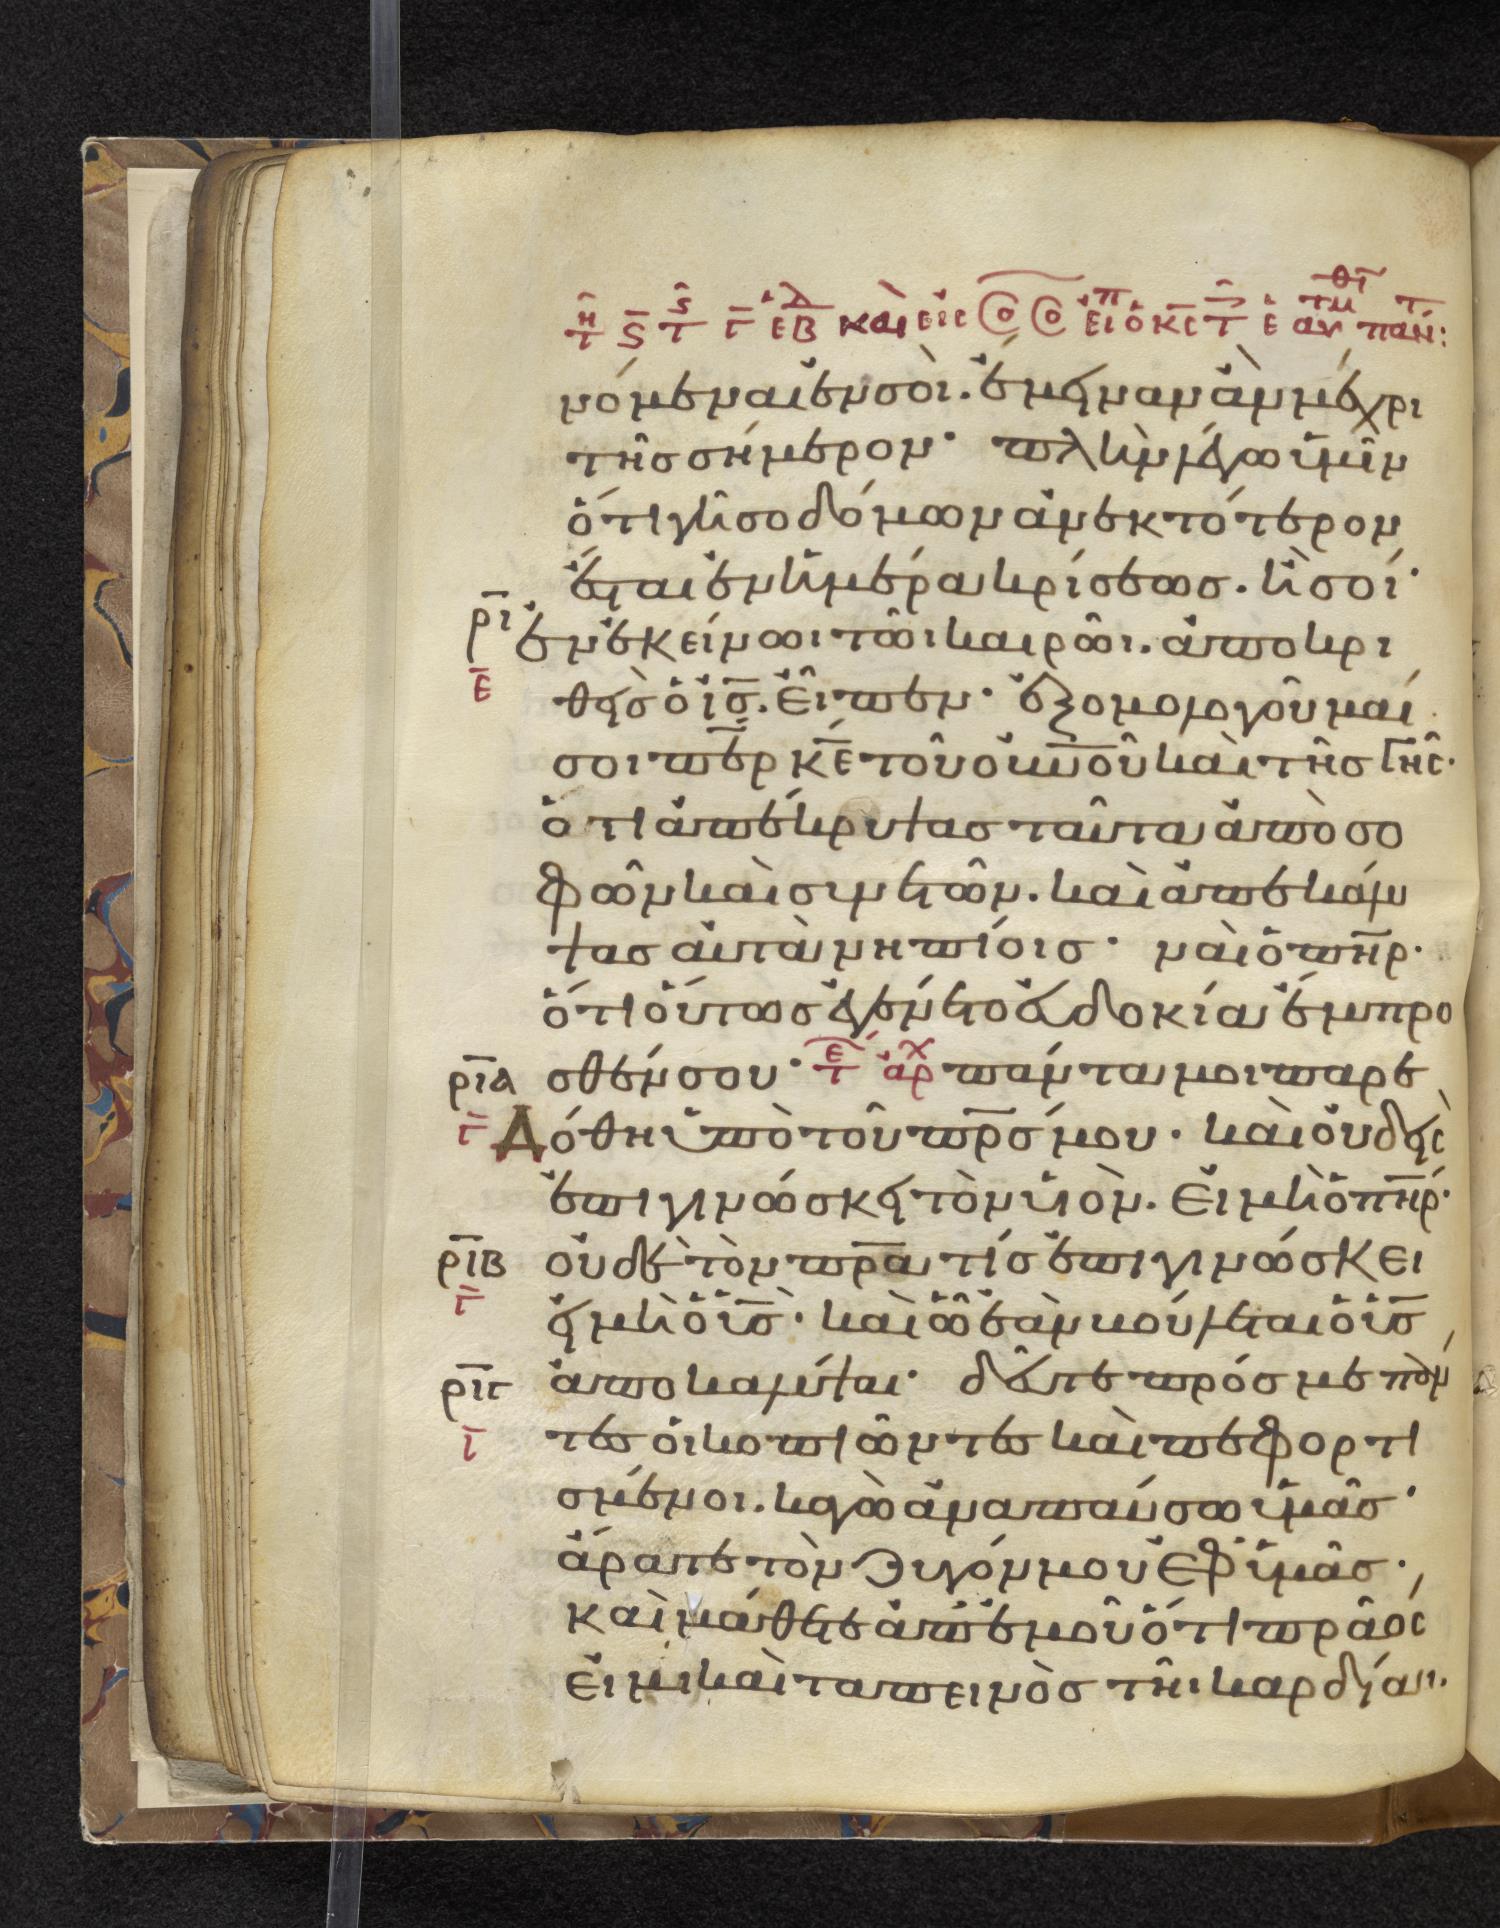 νόμεναι ἐν σοὶ. ἔμειναν ἂν μέχρι
τῆς σήμερον· πλὴν λέγω ὑμῖν
ὅτι γῆ σοδόμων ἀνεκτότερον
ἔσται ἐν ἡμέρα κρίσεως. ἢ σοί·
ρι ἐν ἐκείνωι τῶι καιρῶι. ἀποκρι
ε θεὶς ὁ ις. εἶπεν· ἐξομολογοῦμαί
σοι περ κε τοῦ οὐνοῦ καὶ τῆς γῆς·
ὅτι ἀπέκρυψας ταῦτα ἀπὸ σο
φῶν καὶ συνετῶν. καὶ ἀπεκάλυ
ψας αὐτὰ νηπίοις· ναὶ ὁ πηρ·
ὅτι οὕτως ἐγένετο εὐδοκία ἔμπρο
ρια σθέν σου· τε ἀρχ πάντα μοι παρε
γ Δόθη ὑπὸ τοῦ πρσ μου· καὶ οὐδεὶς
ἐπιγινώσκει τὸν υἱὸν. εἰ μὴ ὁ πηρ·
ριβ οὐδὲ τὸν πρα τίς ἐπιγινώσκει
γ εἰ μὴ ὁ ις· καὶ ὧ ἐὰν βούληται ὁ ις
ριγ ἀποκαλύψαι· δεῦτε πρός με πάν
ι τες οἱ κοπιῶντες καὶ πεφορτι
σμένοι. κἀγὼ ἀναπαύσω ὑμᾶς·
ἄρατε τὸν ζυγόν μου ἐφ ὑμᾶς·
καὶ μάθετε ἀπ ἐμοῦ ὅτι πρᾶος
εἰμι καὶ ταπεινὸς τῆι καρδίαι.